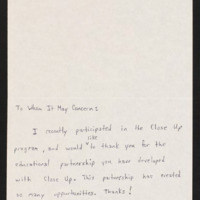 To Whom It May Concern:
I recently participated in the Close Up
program, and would like to thank you for the
educational partnership you have developed
with Close Up. This partnership has created
so many opportunities. Thanks!